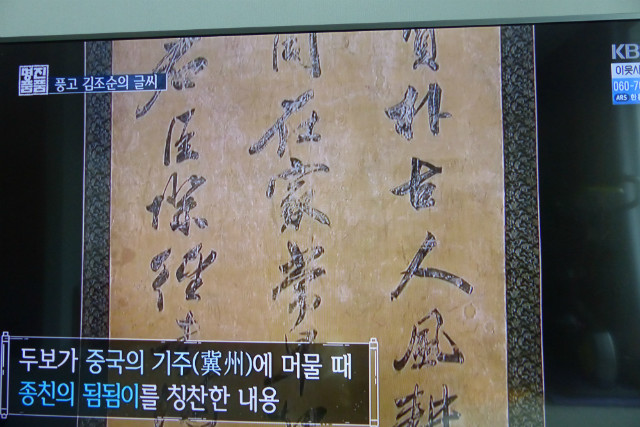 명진
품품
풍고 김조순의 글씨
KBS
이웃사
060-7
ARS 한
質朴古人風耕
同在家常早
君臣際經書
두보가 중국의 기주(冀州)에 머물 때
종친의 됨됨이를 칭찬한 내용